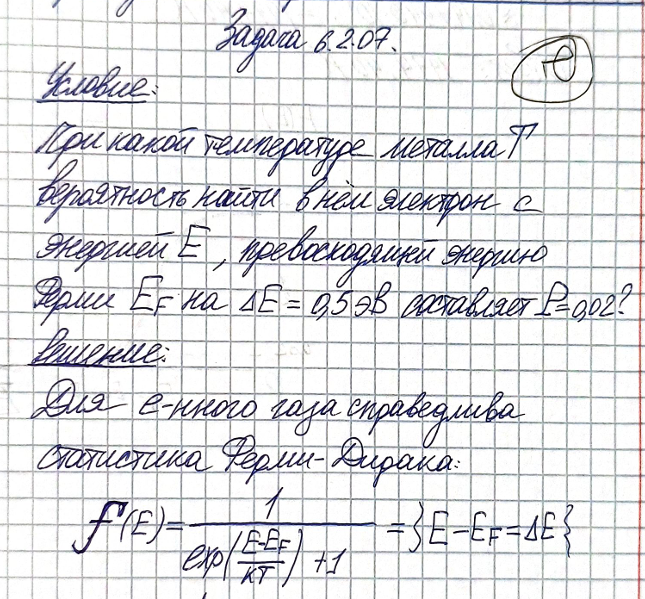 Задача 6.2.07.
Условие:
При какой температуре металла T
вероятность найти в нём электрон с
энергией E, превосходящей энергию
Ферми E_F на ΔE = 0,5 эВ составляет P=0,02?
Решение:
Для e-нного газа справедлива
статистика Ферми-Дирака:
f(E) = 1 / (exp((E-E_F)/kT) + 1) = }E-E_F=ΔE{